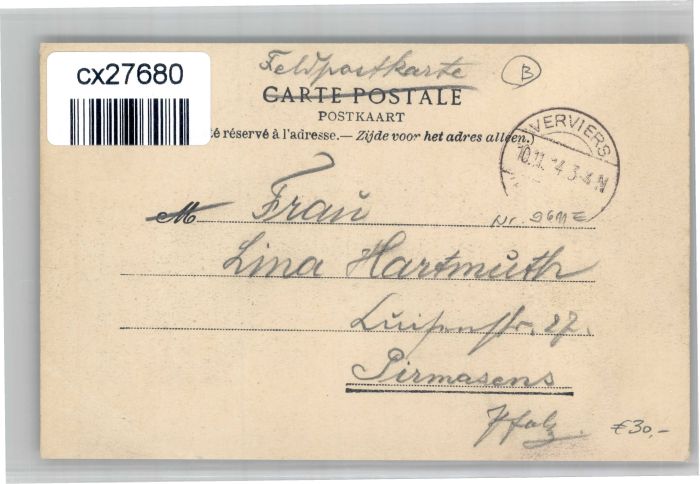 cx27680
Feldpostkarte
B
CARTE POSTALE
POSTKAART
té réservé à l'adresse.— Zijde voor het adres alleen.)
VERVIERS
10.11.14 3-4 N
M Frau
Lina Hartmuth
Luisenstr. 27.
Pirmasens
Pfalz.
€30,-